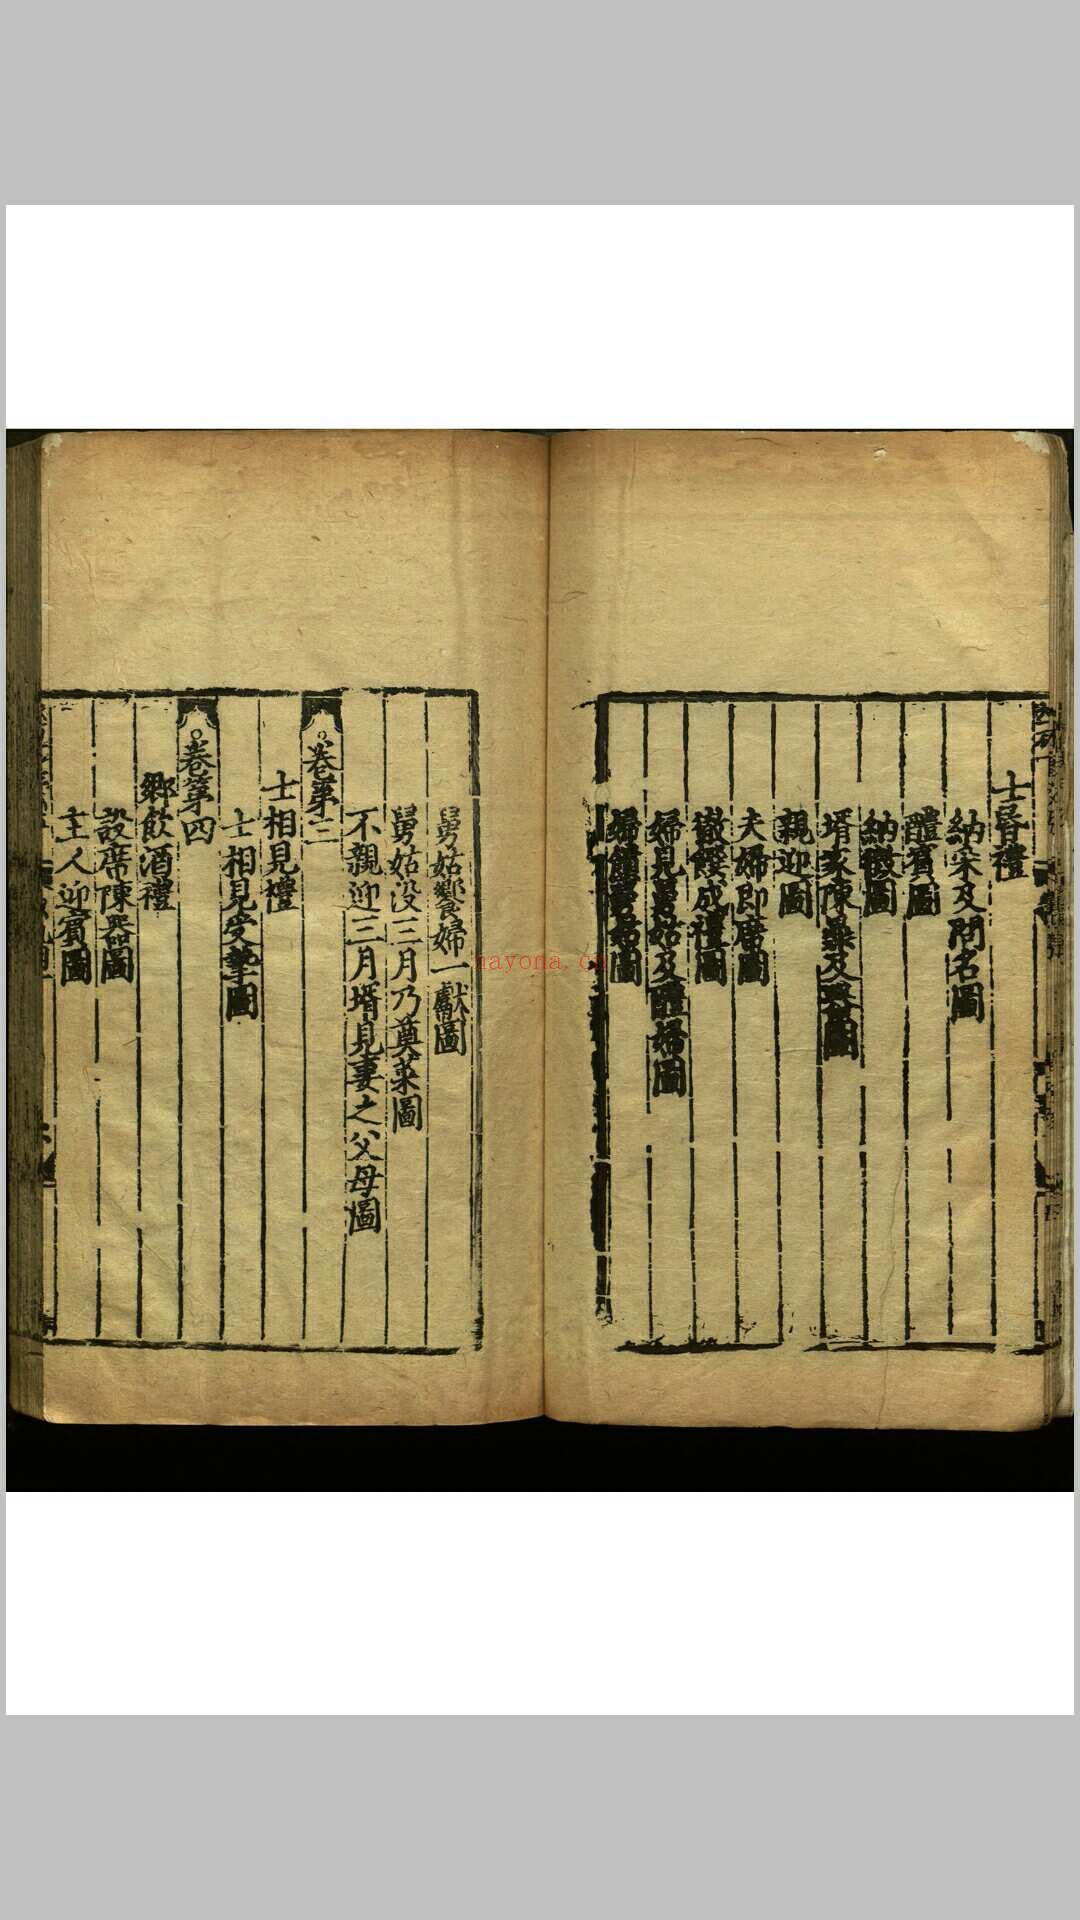 士昏禮
納采及問名圖
醴賓圖
納徵圖
壻家陳鼎及器圖
親迎圖
夫婦即席圖
徹饌成禮圖
婦見舅姑及醴婦圖
婦饋舅姑圖
舅姑饗婦一獻圖
舅姑沒三月乃奠菜圖
不親迎三月壻見妻之父母圖
卷第三
士相見禮
士相見受摯圖
卷第四
鄉飲酒禮
設席陳器圖
主人迎賓圖
nayona.cn